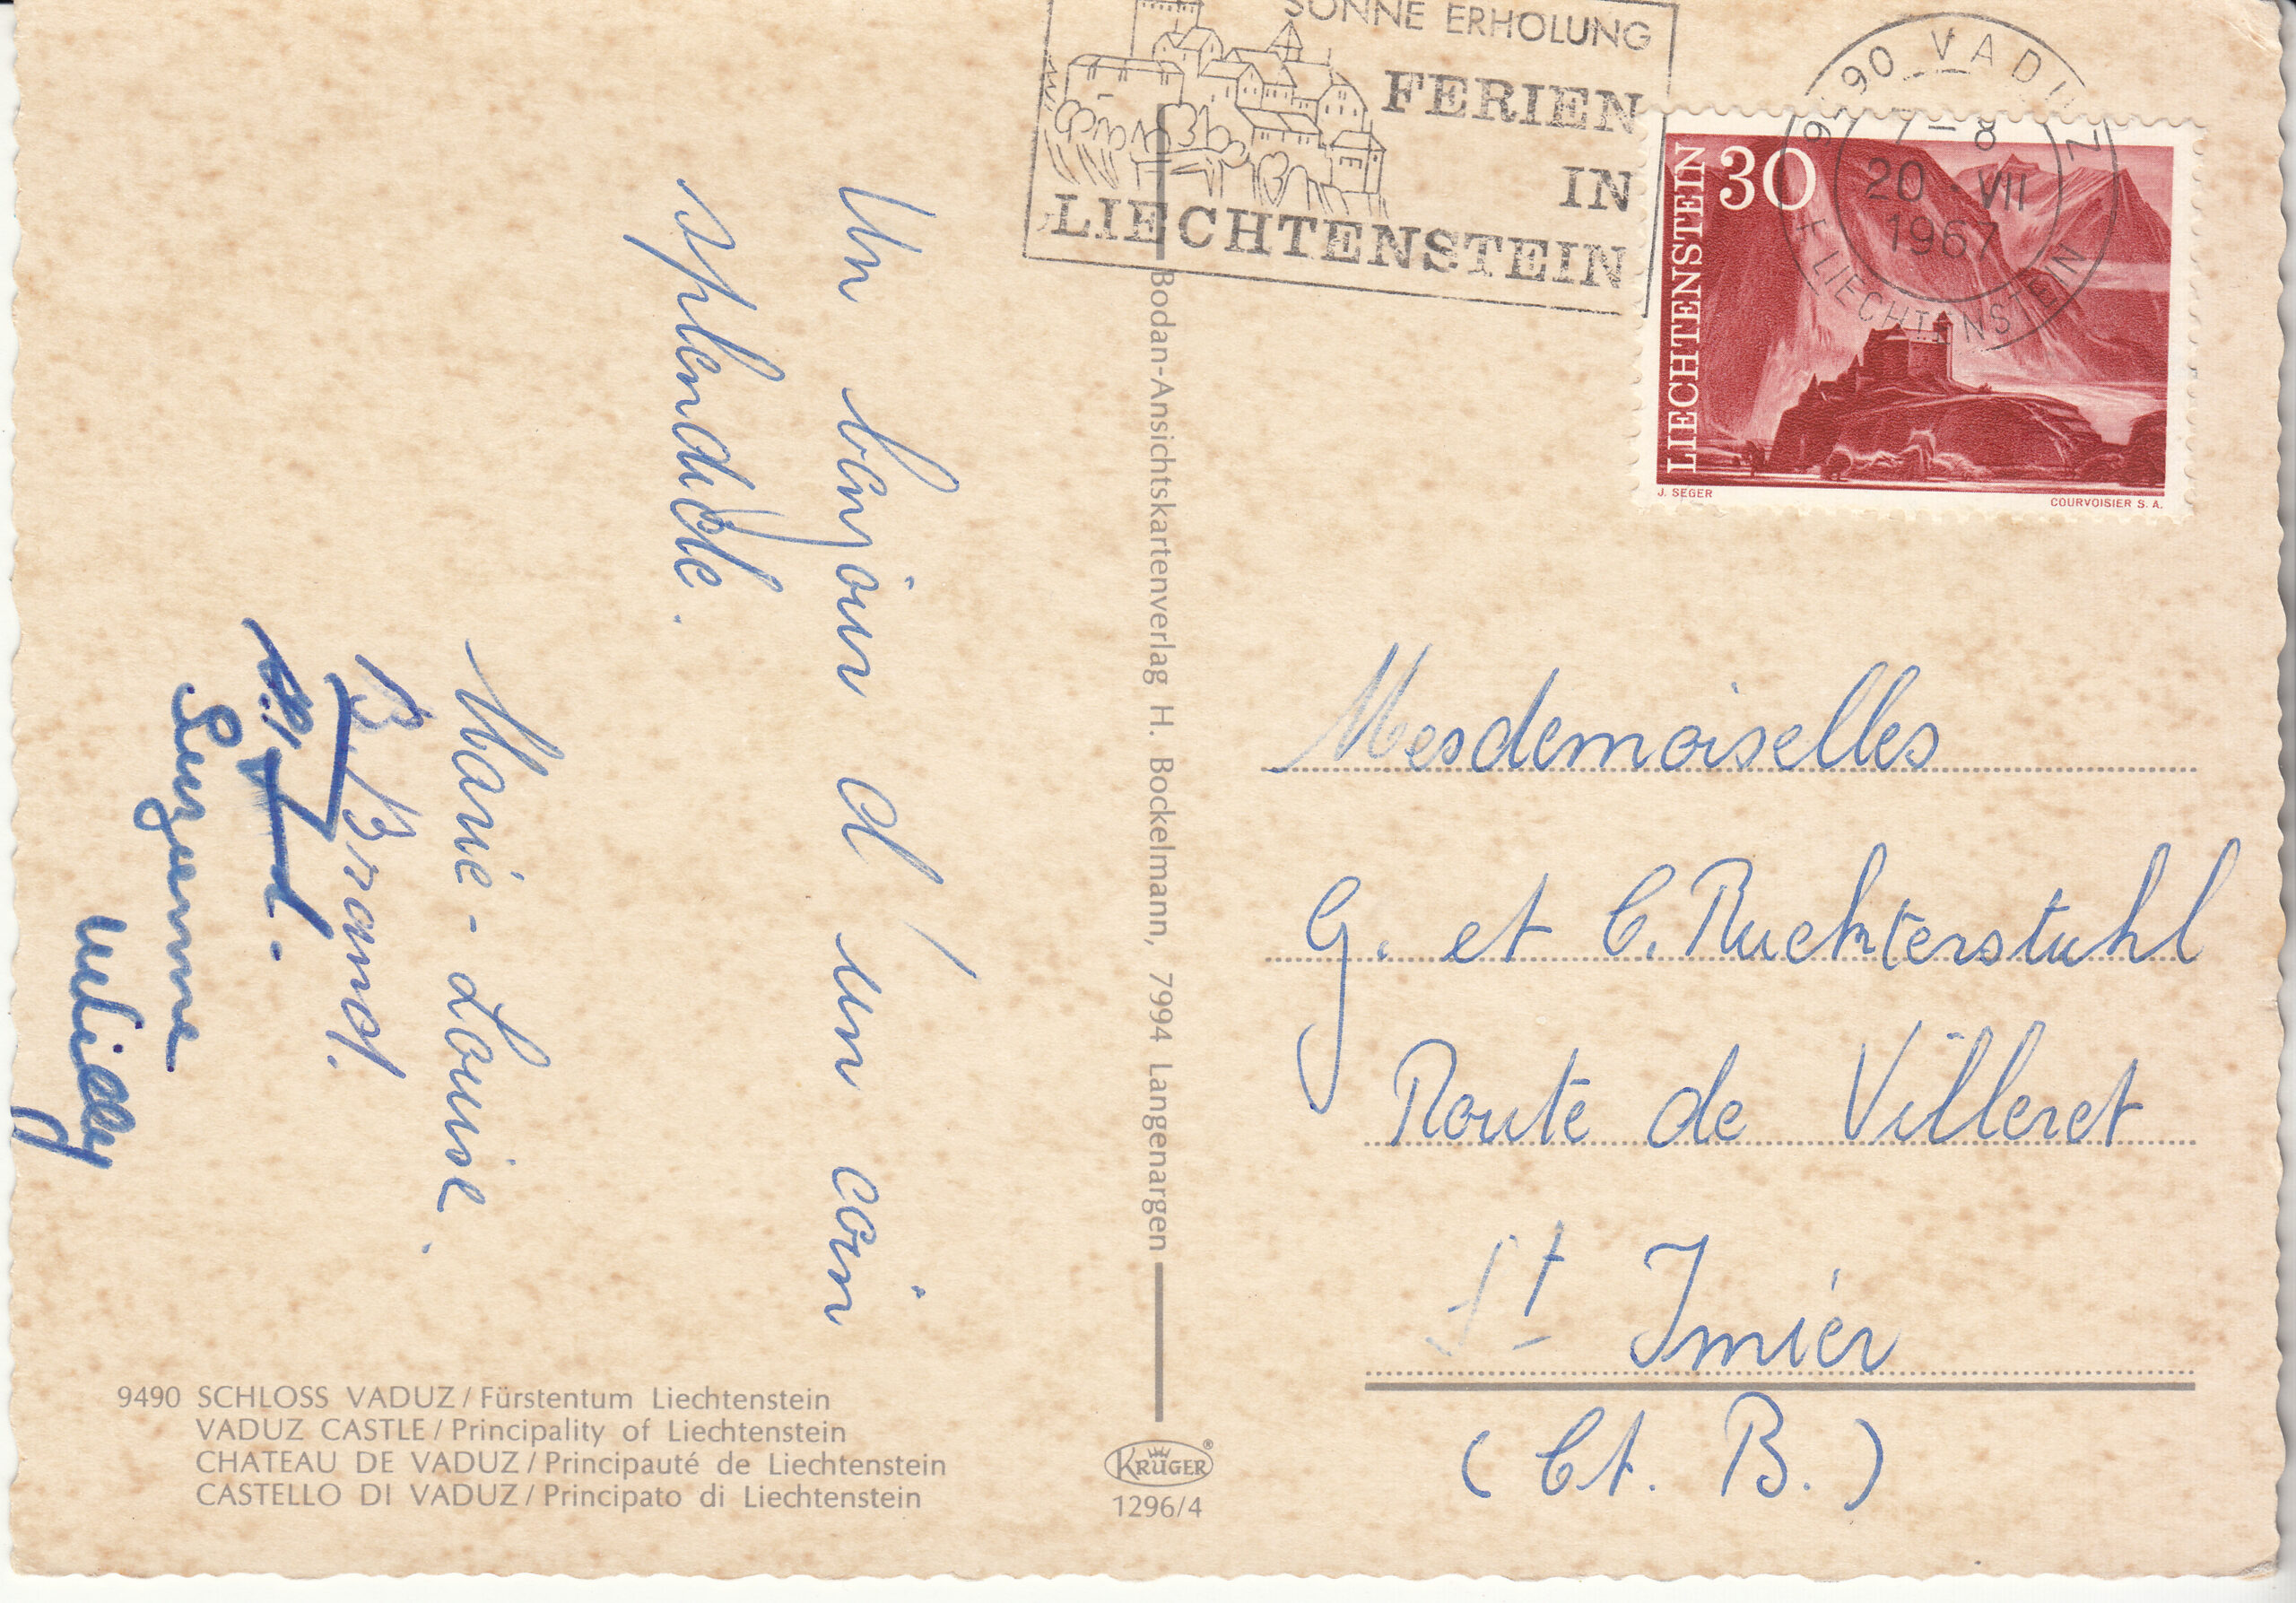 Un bonjour d'un coin
splendide.
Marie-Louise.
B. Brand.
Suzanne
9490 SCHLOSS VADUZ / Fürstentum Liechtenstein
VADUZ CASTLE / Principality of Liechtenstein
CHATEAU DE VADUZ / Principauté de Liechtenstein
CASTELLO DI VADUZ / Principato di Liechtenstein
Bodan-Ansichtskartenverlag H. Bockelmann, 7994 Langenargen
KRÜGER®
1296/4
SONNE ERHOLUNG
FERIEN
IN
LIECHTENSTEIN
9490 VADUZ
7-8
20-VII
1967
F. LIECHTENSTEIN
LIECHTENSTEIN
30
J. SEGER
COURVOISIER S. A.
Mesdemoiselles
G. et C. Ruckterstuhl
Route de Villeret
St Imier
(Ct. B.)